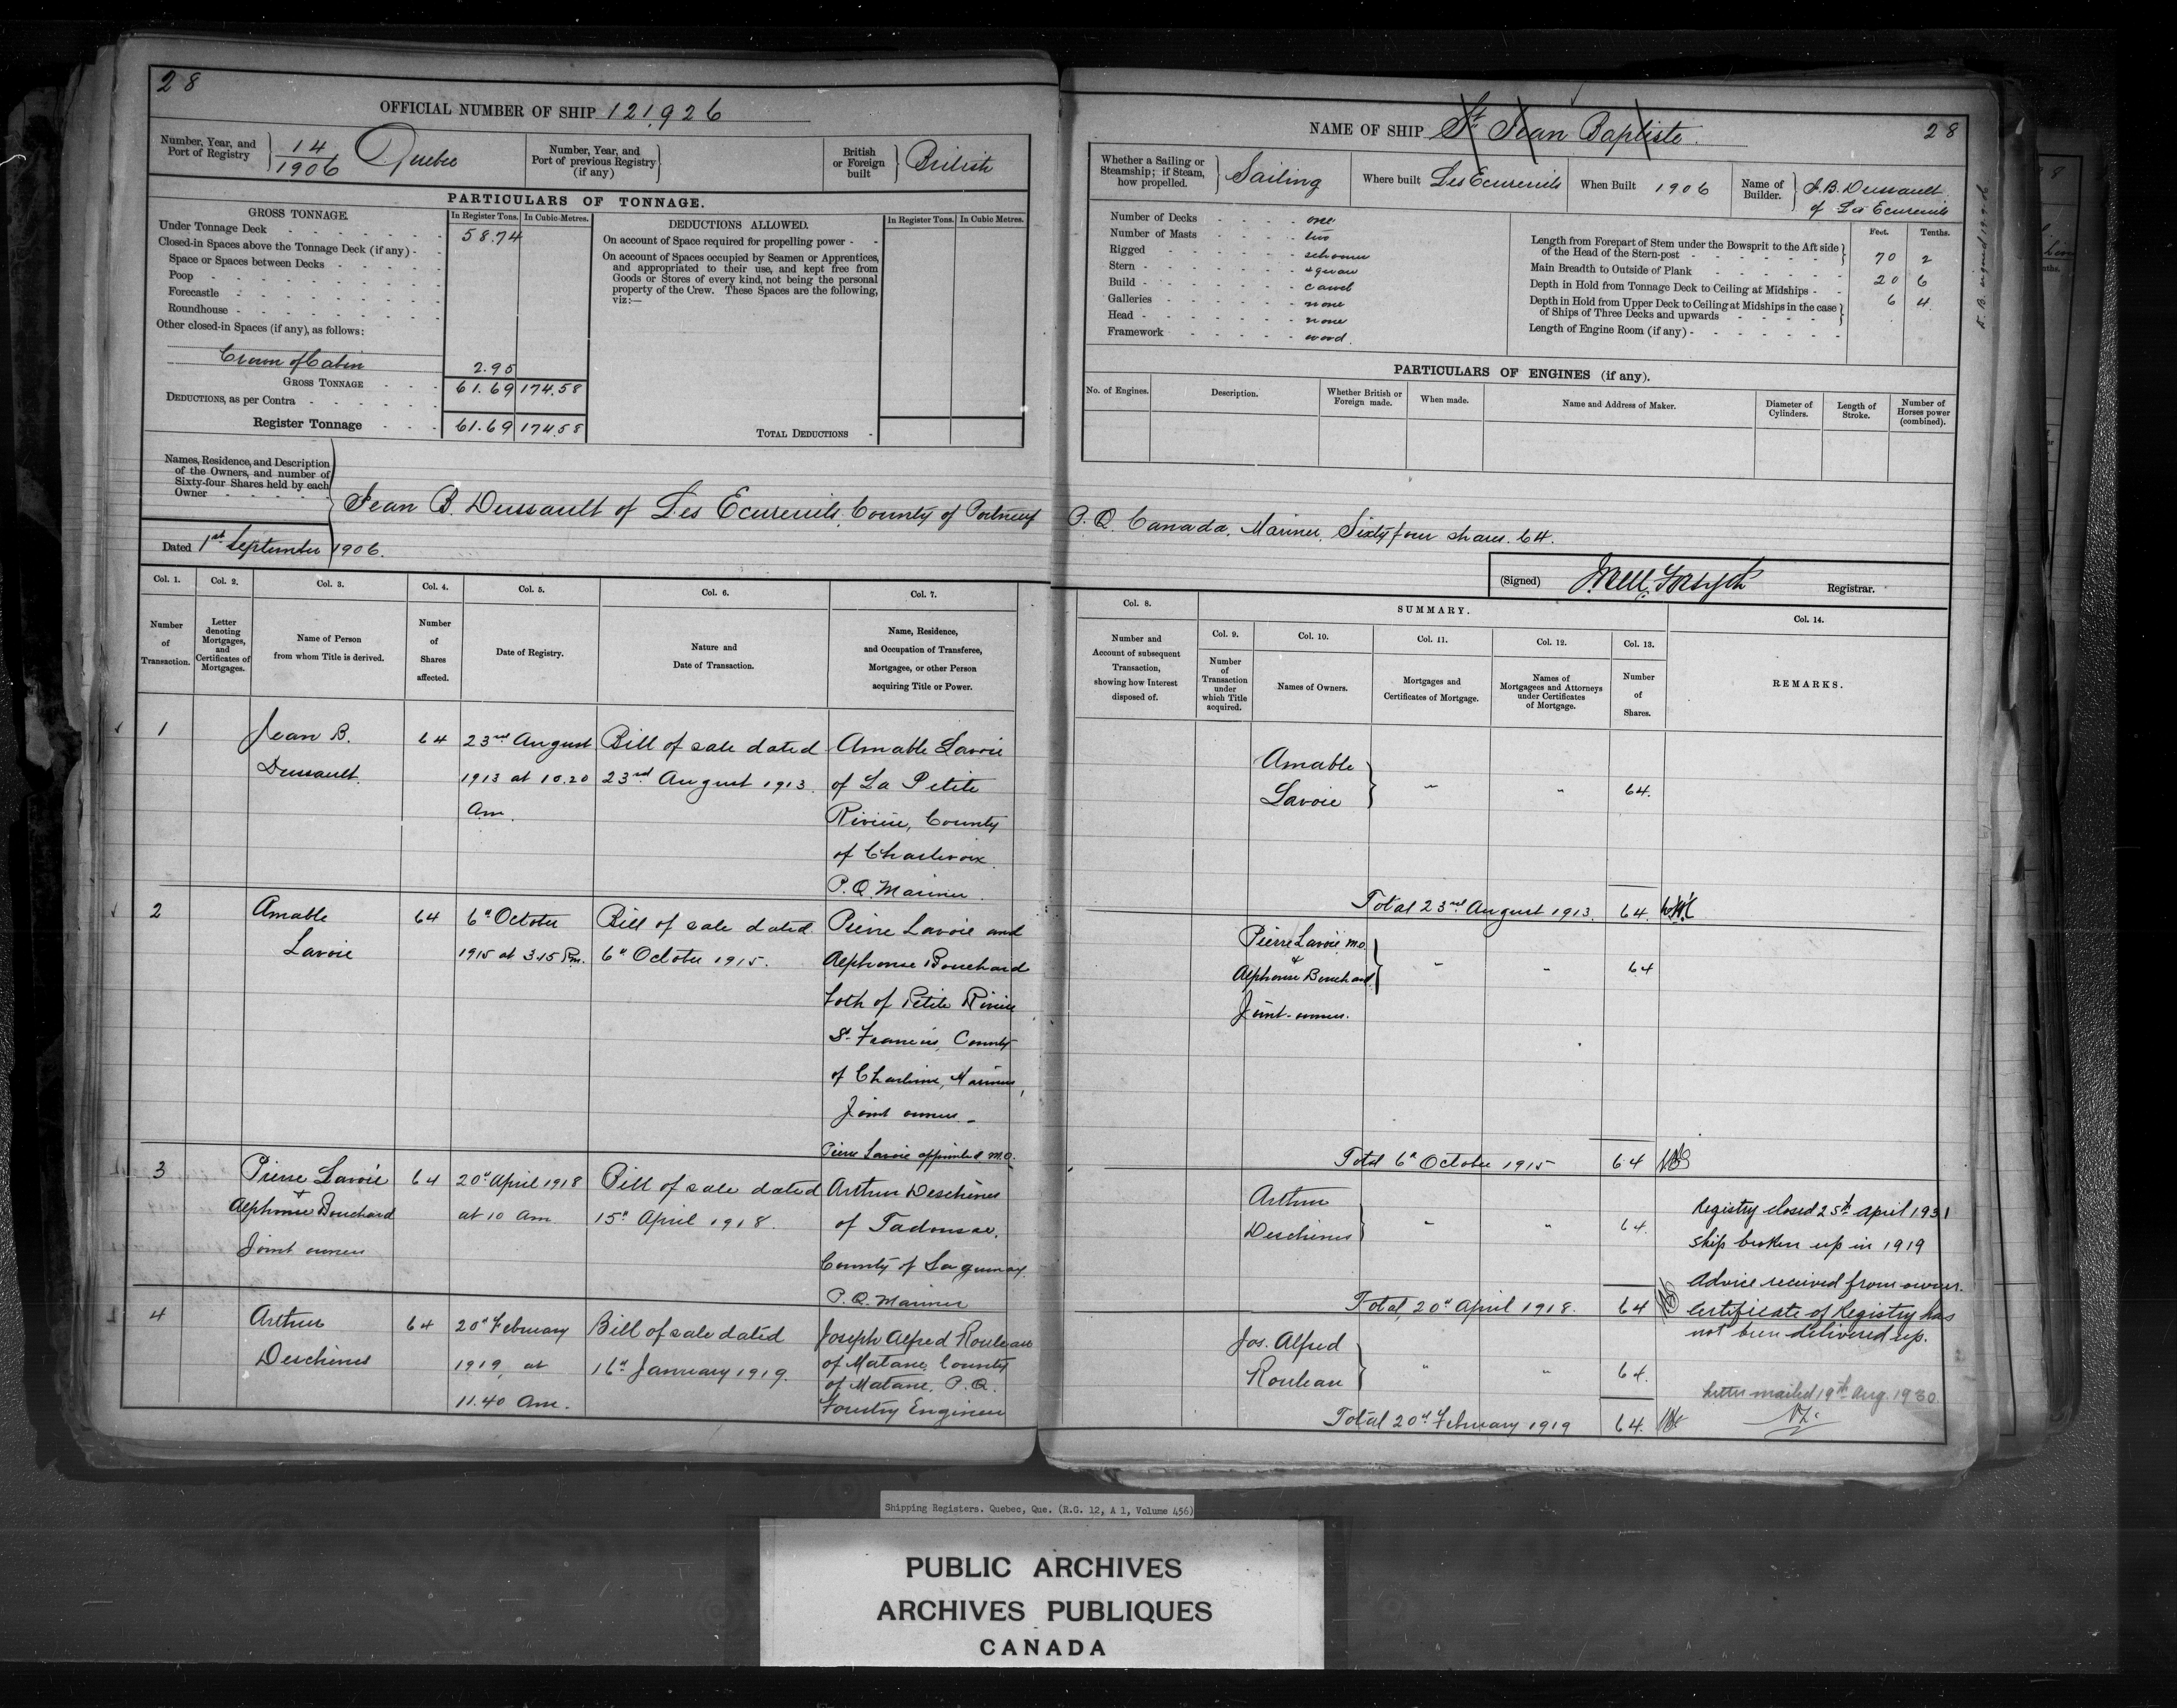 28
OFFICIAL NUMBER OF SHIP 121,926
Number, Year, and Port of Registry } 14/1906 Quebec
Number, Year, and Port of previous Registry (if any) }
British or Foreign built } British
PARTICULARS OF TONNAGE.
GROSS TONNAGE. In Register Tons. In Cubic Metres.
Under Tonnage Deck 58.74
Closed-in Spaces above the Tonnage Deck (if any)
Space or Spaces between Decks
Poop
Forecastle
Roundhouse
Other closed-in Spaces (if any), as follows:
Crown of Cabin 2.95
GROSS TONNAGE 61.69 174.58
DEDUCTIONS, as per Contra
Register Tonnage 61.69 174.58
DEDUCTIONS ALLOWED. In Register Tons. In Cubic Metres.
On account of Space required for propelling power
On account of Spaces occupied by Seamen or Apprentices,
and appropriated to their use, and kept free from
Goods or Stores of every kind, not being the personal
property of the Crew. These Spaces are the following,
viz:—
TOTAL DEDUCTIONS
NAME OF SHIP St Jean Baptiste. 28
Whether a Sailing or Steamship; if Steam, how propelled. } Sailing
Where built Les Ecureuils
When Built 1906
Name of Builder. } J. B. Dussault
of Les Ecureuils
Number of Decks one
Number of Masts two
Rigged schooner
Stern square
Build carvel
Galleries none
Head none
Framework wood.
Feet. Tenths.
Length from Forepart of Stem under the Bowsprit to the Aft side of the Head of the Stern-post 70 2
Main Breadth to Outside of Plank 20 6
Depth in Hold from Tonnage Deck to Ceiling at Midships 6 4
Depth in Hold from Upper Deck to Ceiling at Midships in the case of Ships of Three Decks and upwards
Length of Engine Room (if any)
PARTICULARS OF ENGINES (if any).
No. of Engines. Description. Whether British or Foreign made. When made. Name and Address of Maker. Diameter of Cylinders. Length of Stroke. Number of Horses power (combined).
Names, Residence, and Description
of the Owners, and number of
Sixty-four Shares held by each
Owner
Jean B. Dussault of Les Ecureuils, County of Portneuf P. Q. Canada, Mariner, Sixty four shares. 64.
Dated 1st September 1906.
(Signed) Forsyth Registrar.
Col. 1. Col. 2. Col. 3. Col. 4. Col. 5. Col. 6. Col. 7.
Number of Transaction.
Letter denoting Mortgages, and Certificates of Mortgages.
Name of Person from whom Title is derived.
Number of Shares affected.
Date of Registry.
Nature and Date of Transaction.
Name, Residence, and Occupation of Transferee, Mortgagee, or other Person acquiring Title or Power.
Col. 8. SUMMARY. Col. 14.
Col. 9. Col. 10. Col. 11. Col. 12. Col. 13.
Number and Account of subsequent Transaction, showing how Interest disposed of.
Number of Transaction under which Title acquired.
Names of Owners.
Mortgages and Certificates of Mortgage.
Names of Mortgagees and Attorneys under Certificates of Mortgage.
Number of Shares.
REMARKS.
1 Jean B. 64 23rd August Bill of sale dated Amable Lavoie
Dussault. 1913 at 10.20 23rd August 1913. of La Petite
Am. Riviere, County
of Charlevoix
P.Q. Mariner
Amable
Lavoie } " " 64.
Total 23rd August 1913. 64.
2 Amable 64 6th October Bill of sale dated Pierre Lavoie and
Lavoie 1915 at 3.15 Pm. 6th October 1915. Alphonse Bouchard
both of Petite Riviere
St Francois, County
of Charlevoix, Mariners,
Joint owners.
Pierre Lavoie appointed M.O.
Pierre Lavoie M.O.
&
Alphonse Bouchard } " " 64
Joint-owners.
Total 6th October 1915 64
3 Pierre Lavoie 64 20th April 1918 Bill of sale dated Arthur Deschenes
& Alphonse Bouchard at 10 am. 15th April 1918. of Tadousac,
Joint owners County of Saguenay.
P.Q. Mariner
Arthur
Deschenes } " " 64.
Total, 20th April 1918. 64
Registry closed 25th April 1931
ship broken up in 1919
Advice received from owner.
Certificate of Registry has
not been delivered up.
4 Arthur 64 20th February Bill of sale dated Joseph Alfred Rouleau
Deschenes 1919, at 16th January 1919. of Matane, County
11.40 Am. of Matane, P. Q.
Forestry Engineer
Jos. Alfred
Rouleau } " " 64.
Total 20th February 1919 64.
Letter mailed 19th Aug. 1930.
Shipping Registers. Quebec, Que. (R.G. 12, A 1, Volume 456)
PUBLIC ARCHIVES
ARCHIVES PUBLIQUES
CANADA